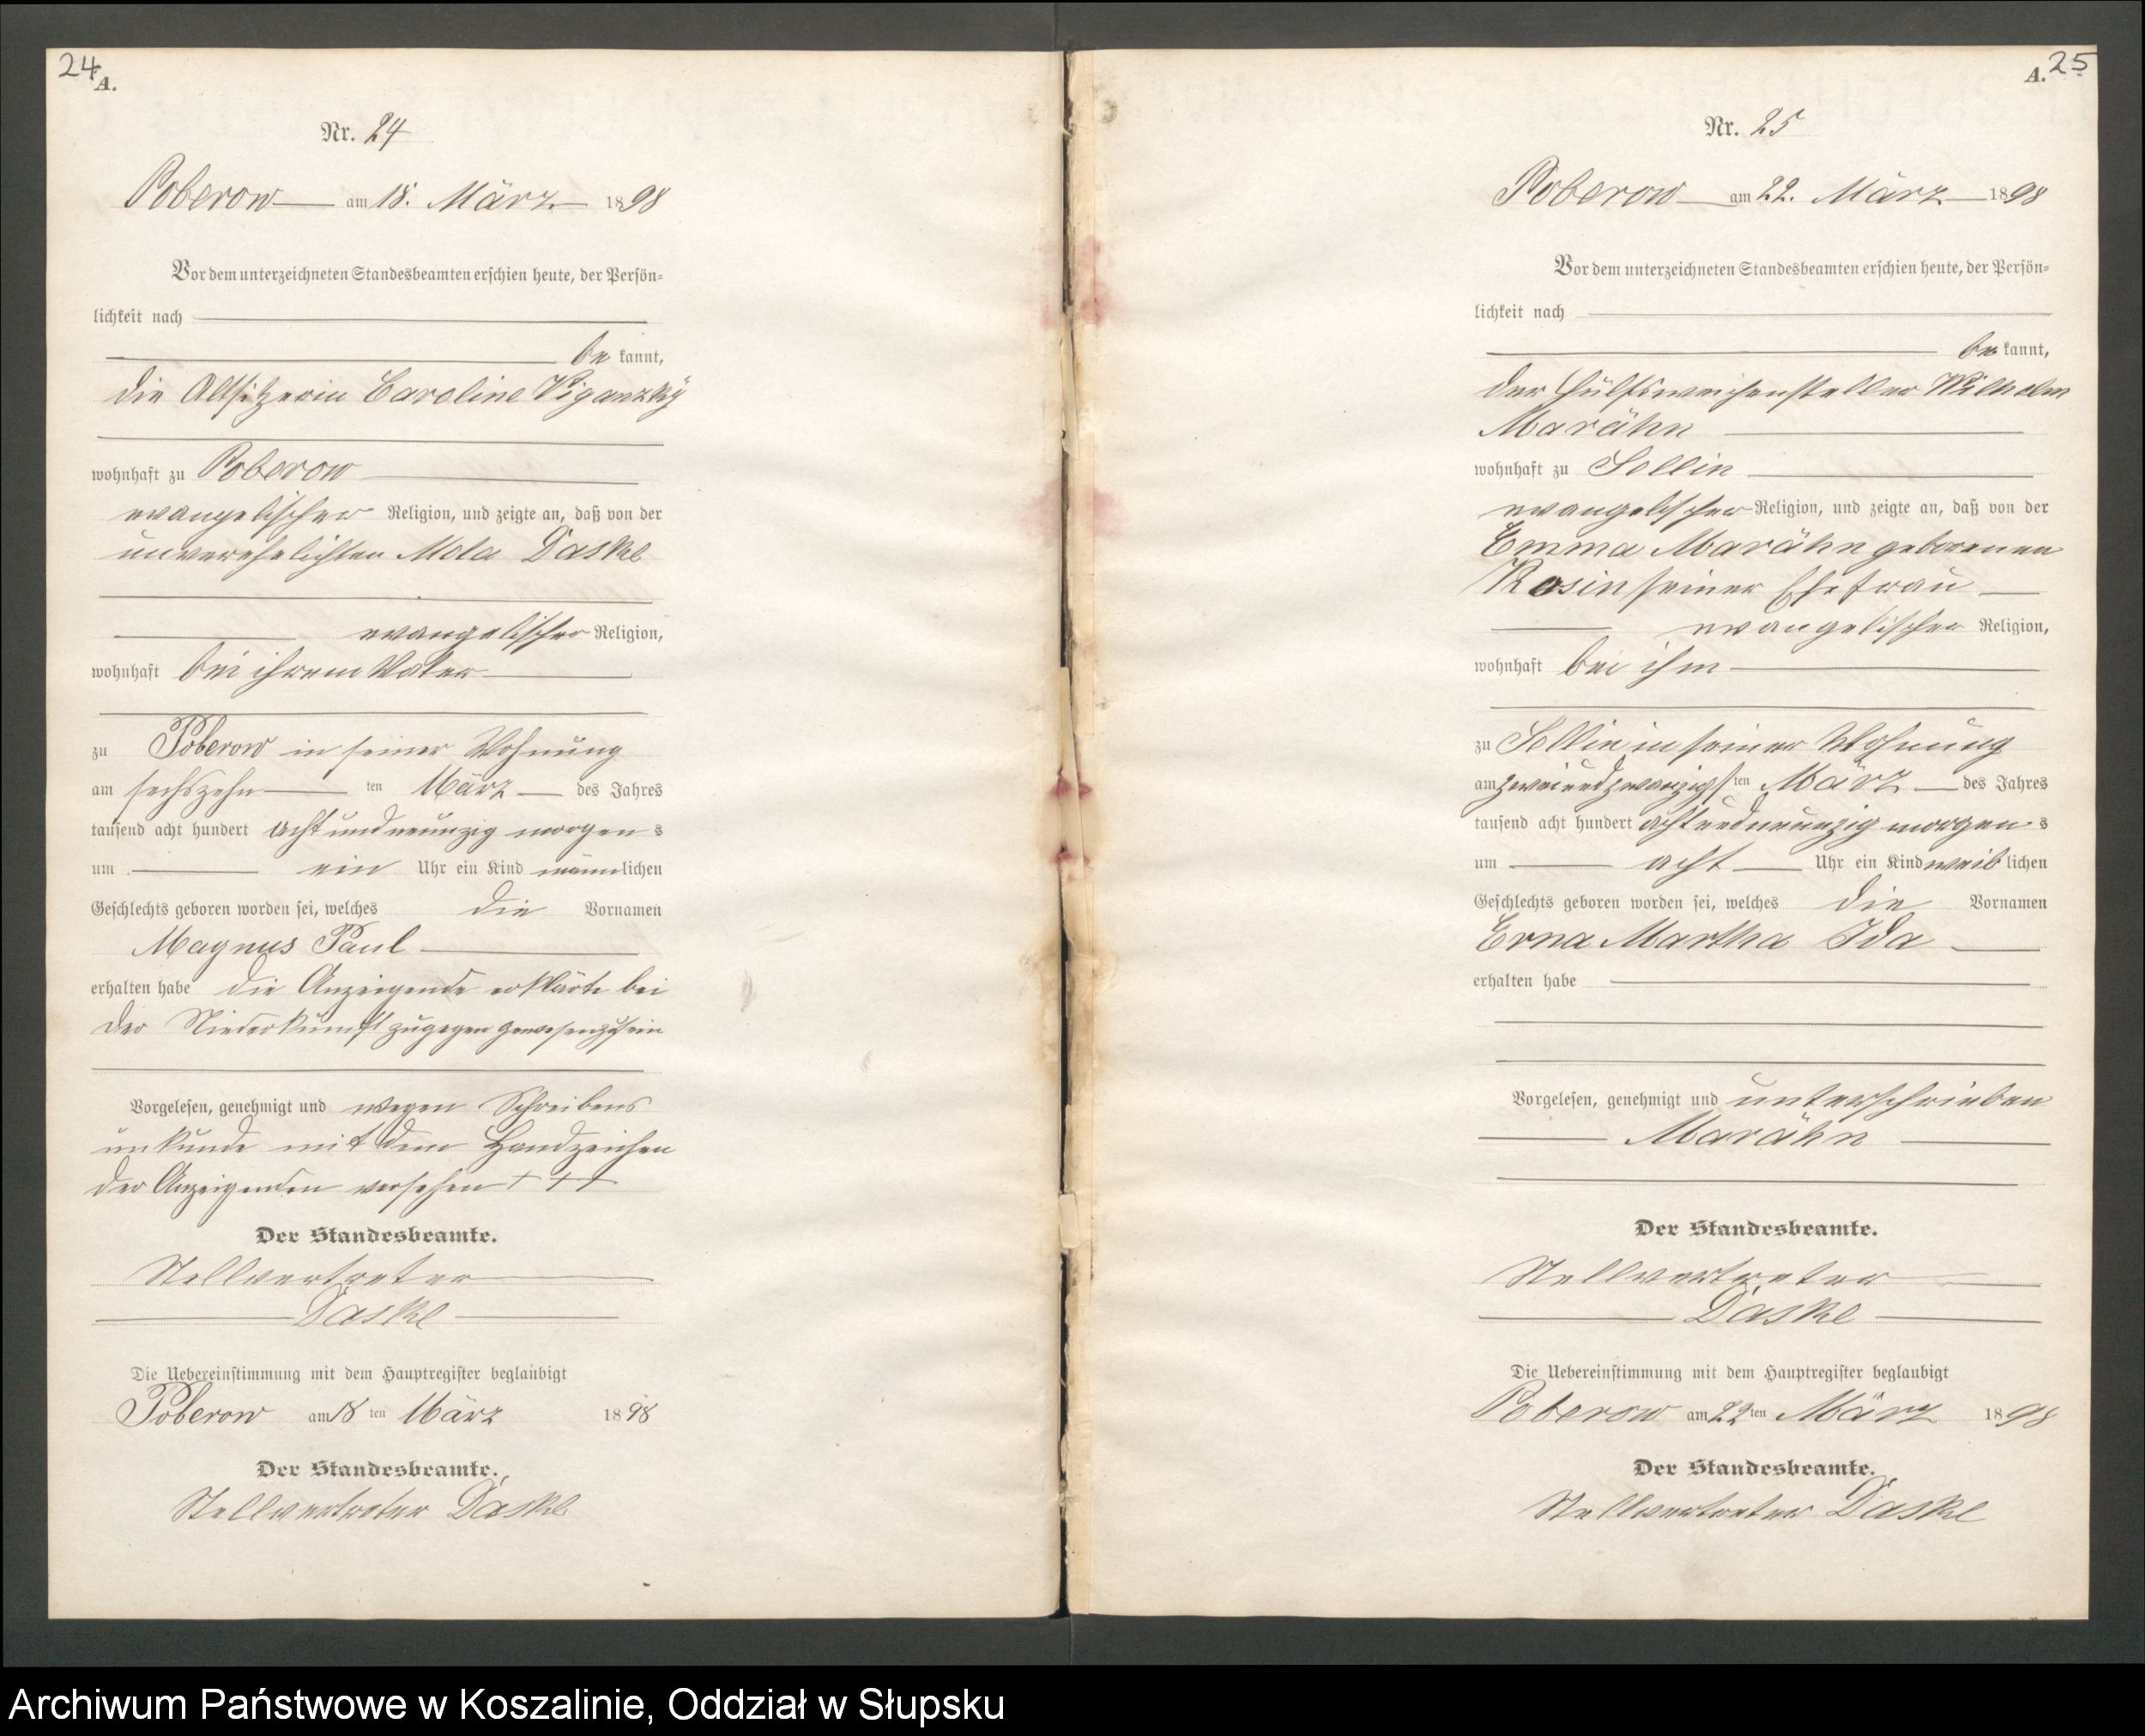 24
A.
Nr. 24
Poberow am 18. März 1898
Vor dem unterzeichneten Standesbeamten erschien heute, der Persön-
lichkeit nach
be kannt,
die Altsitzerin Caroline Piganzky
wohnhaft zu Poberow
evangelischer Religion, und zeigte an, daß von der
unverehelichten Daske
evangelischer Religion,
wohnhaft bei ihrem Vater
zu Poberow in seiner Wohnung
am sechszehn ten März des Jahres
tausend acht hundert acht und neunzig morgen s
um ein Uhr ein Kind männlichen
Geschlechts geboren worden sei, welches die Vornamen
Magnus Paul
erhalten habe die Anzeigende erklärte bei
der Niederkunft zugegen gewesen zu sein
Vorgelesen, genehmigt und wegen Schreibens
unkunde mit dem Handzeichen
der Anzeigenden versehen + + +
Der Standesbeamte.
Stellvertreter
Daske
Die Uebereinstimmung mit dem Hauptregister beglaubigt
Poberow am 18 ten März 1898
Der Standesbeamte.
Stellvertreter Daske
A. 25
Nr. 25
Poberow am 22. März 1898
Vor dem unterzeichneten Standesbeamten erschien heute, der Persön-
lichkeit nach
be kannt,
der Hülfsweichensteller Wilhelm
Marähn
wohnhaft zu Sellin
evangelischer Religion, und zeigte an, daß von der
Emma Marähn geborenen
Rosin seiner Ehefrau
evangelischer Religion,
wohnhaft bei ihm
zu Sellin in seiner Wohnung
am zweiundzwanzigs ten März des Jahres
tausend acht hundert acht und neunzig morgen s
um acht Uhr ein Kind weib lichen
Geschlechts geboren worden sei, welches die Vornamen
Erna Martha Ida
erhalten habe
Vorgelesen, genehmigt und unterschrieben
Marähn
Der Standesbeamte.
Stellvertreter
Daske
Die Uebereinstimmung mit dem Hauptregister beglaubigt
Poberow am 22 ten März 1898
Der Standesbeamte.
Stellvertreter Daske
Archiwum Państwowe w Koszalinie, Oddział w Słupsku